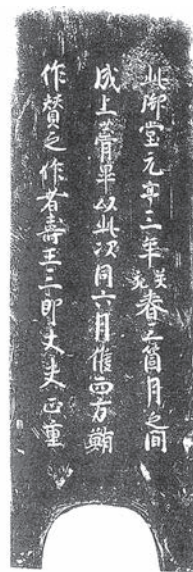 此御堂元亨三年癸亥春三箇月之間
成上葺畢以此次同六月催西方
作賛之作者壽王三郎丈夫正重